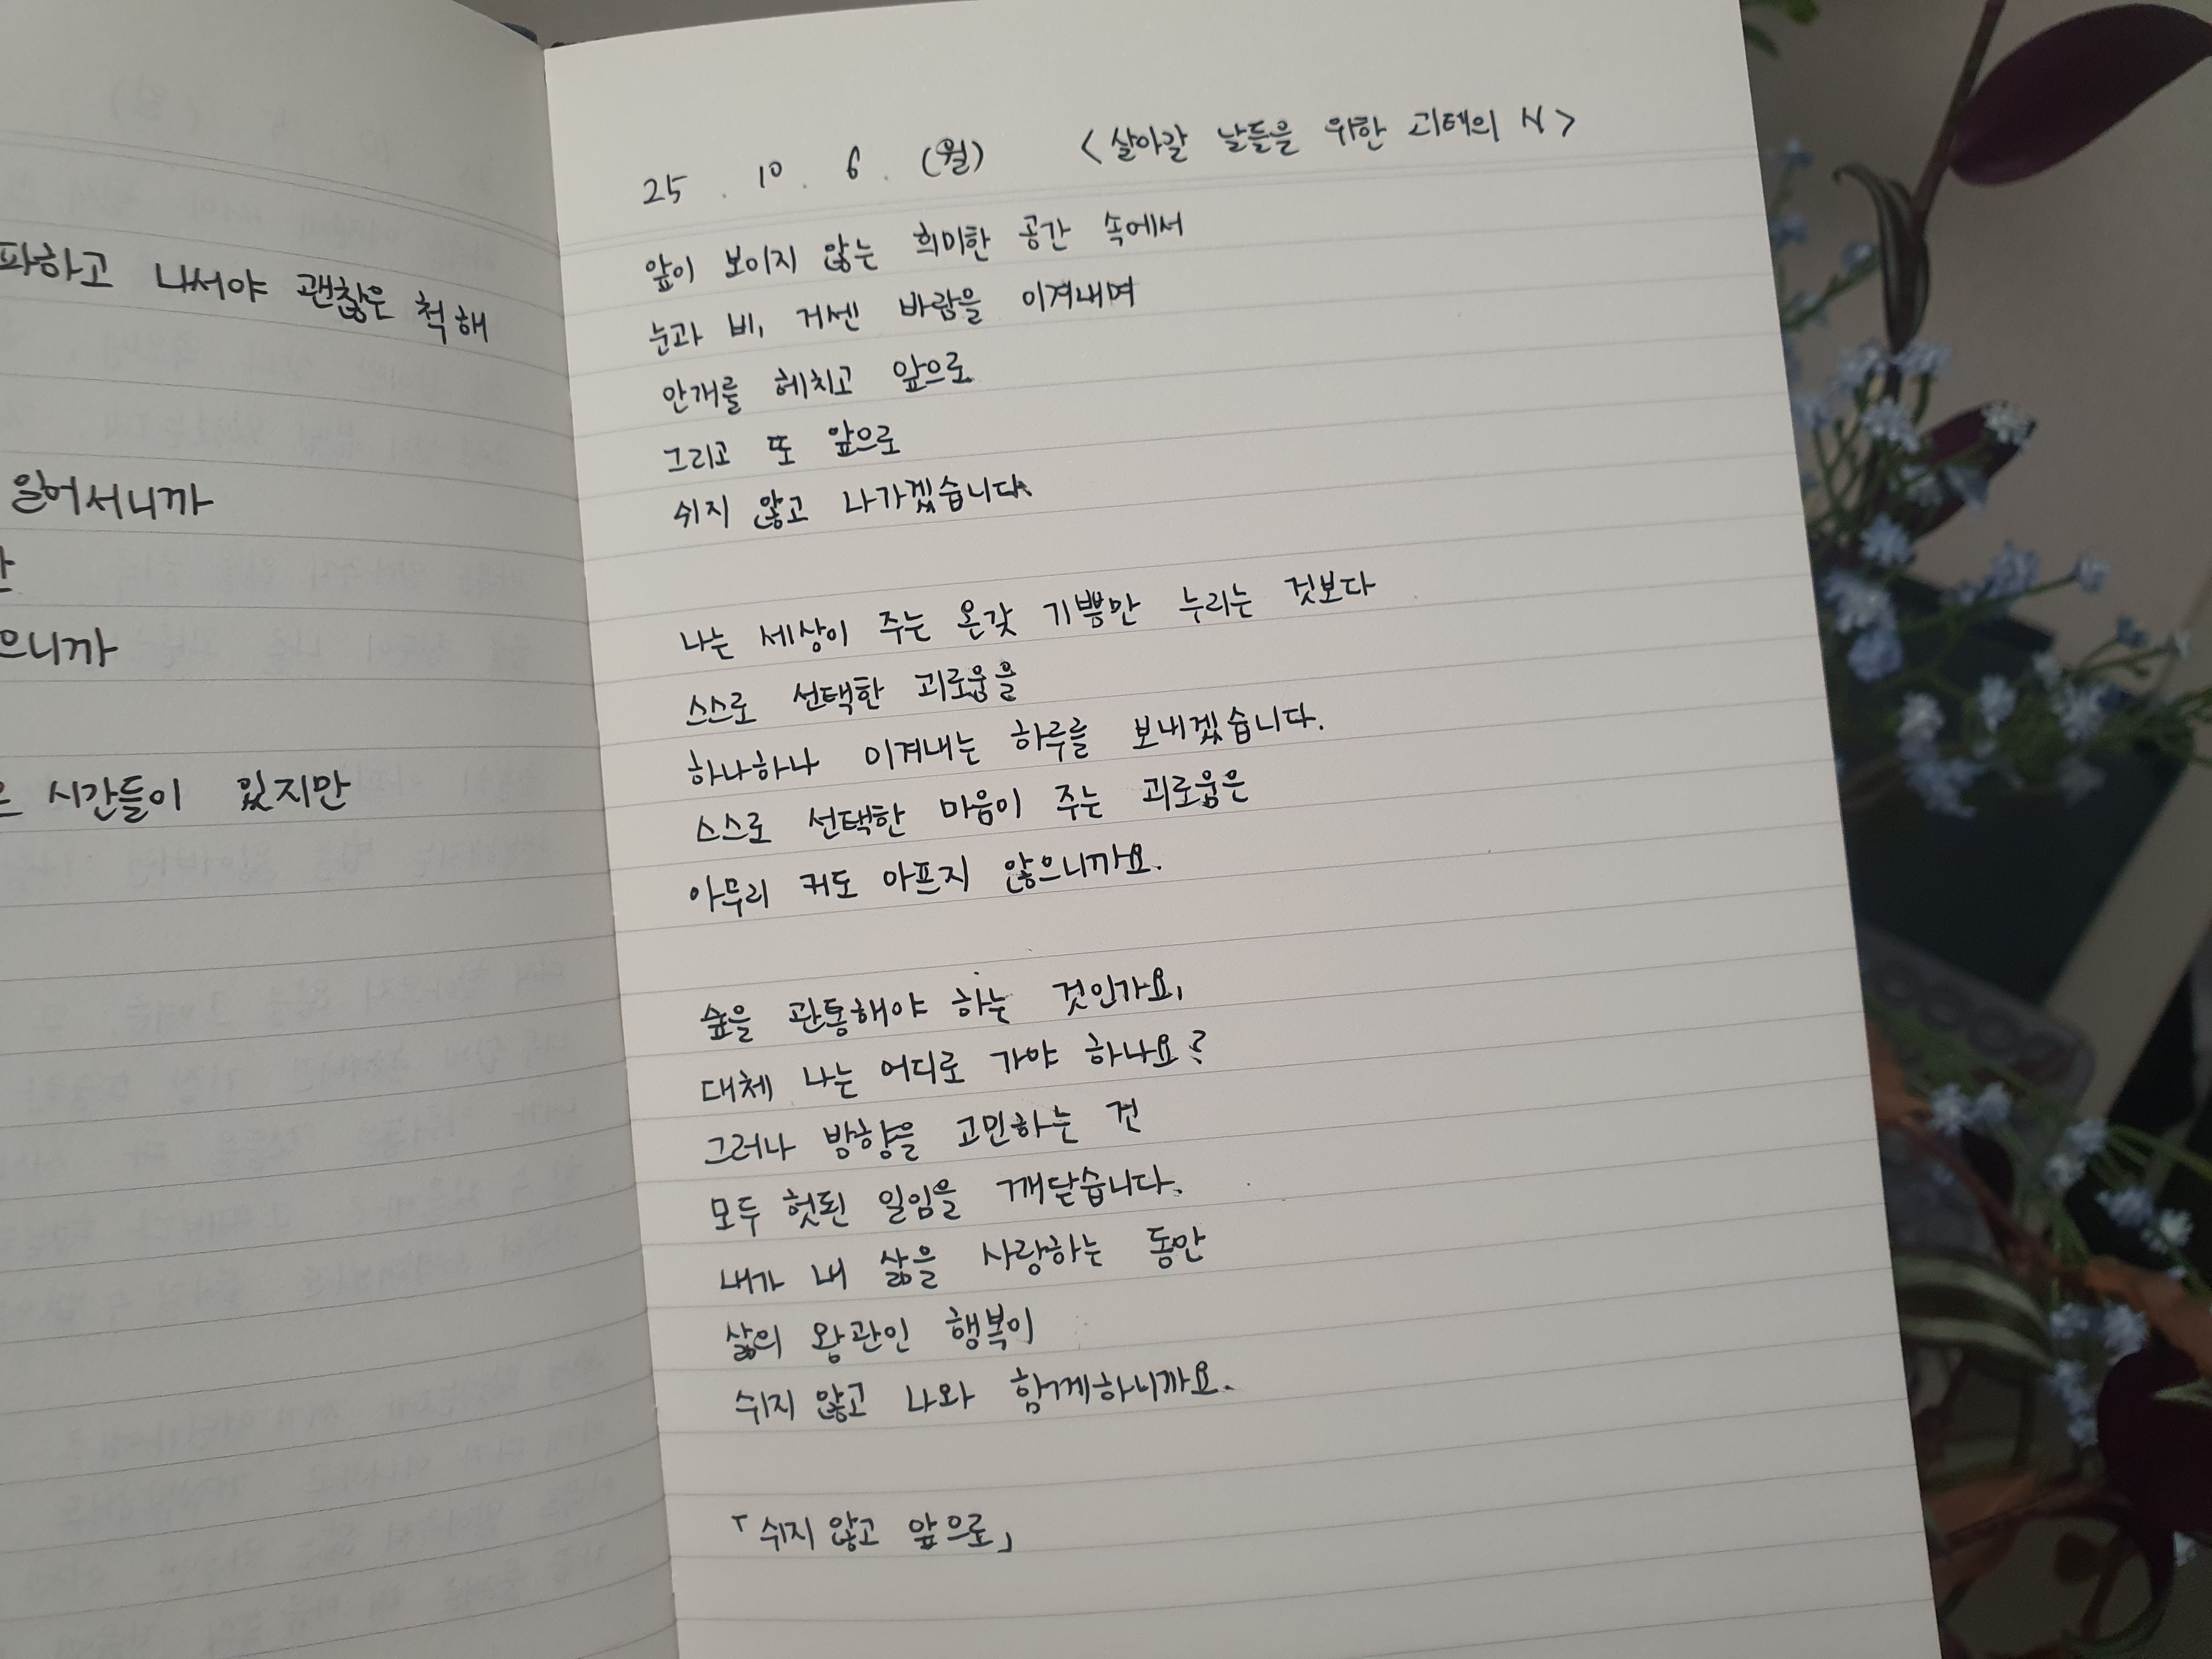 파하고 나서야 괜찮은 척해
일어서니까
으니까
시간들이 있지만
25. 10. 6. (월) <살아갈 날들을 위한 괴테의 시>
앞이 보이지 않는 희미한 공간 속에서
눈과 비, 거센 바람을 이겨내며
안개를 헤치고 앞으로
그리고 또 앞으로
쉬지 않고 나가겠습니다.
나는 세상이 주는 온갖 기쁨만 누리는 것보다
스스로 선택한 괴로움을
하나하나 이겨내는 하루를 보내겠습니다.
스스로 선택한 마음이 주는 괴로움은
아무리 커도 아프지 않으니까요.
숲을 관통해야 하는 것인가요,
대체 나는 어디로 가야 하나요?
그러나 방향을 고민하는 건
모두 헛된 일임을 깨닫습니다.
내가 내 삶을 사랑하는 동안
삶의 왕관인 행복이
쉬지 않고 나와 함께하니까요.
「쉬지 않고 앞으로」